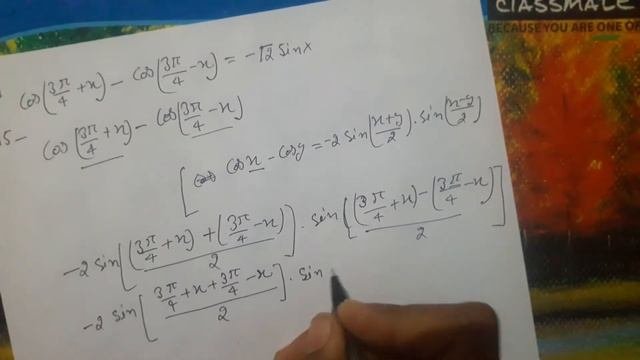 CLASSMATE
BECAUSE YOU ARE ONE OF
cos(3π/4 + x) - cos(3π/4 - x) = -√2 sin x
cos(3π/4 + x) - cos(3π/4 - x)
[cos x - cos y = -2 sin(x+y/2) . sin(x-y/2)
-2 sin[(3π/4 + x) + (3π/4 - x)/2] . sin[(3π/4 + x) - (3π/4 - x)/2]
-2 sin[3π/4 + x + 3π/4 - x/2] . sin